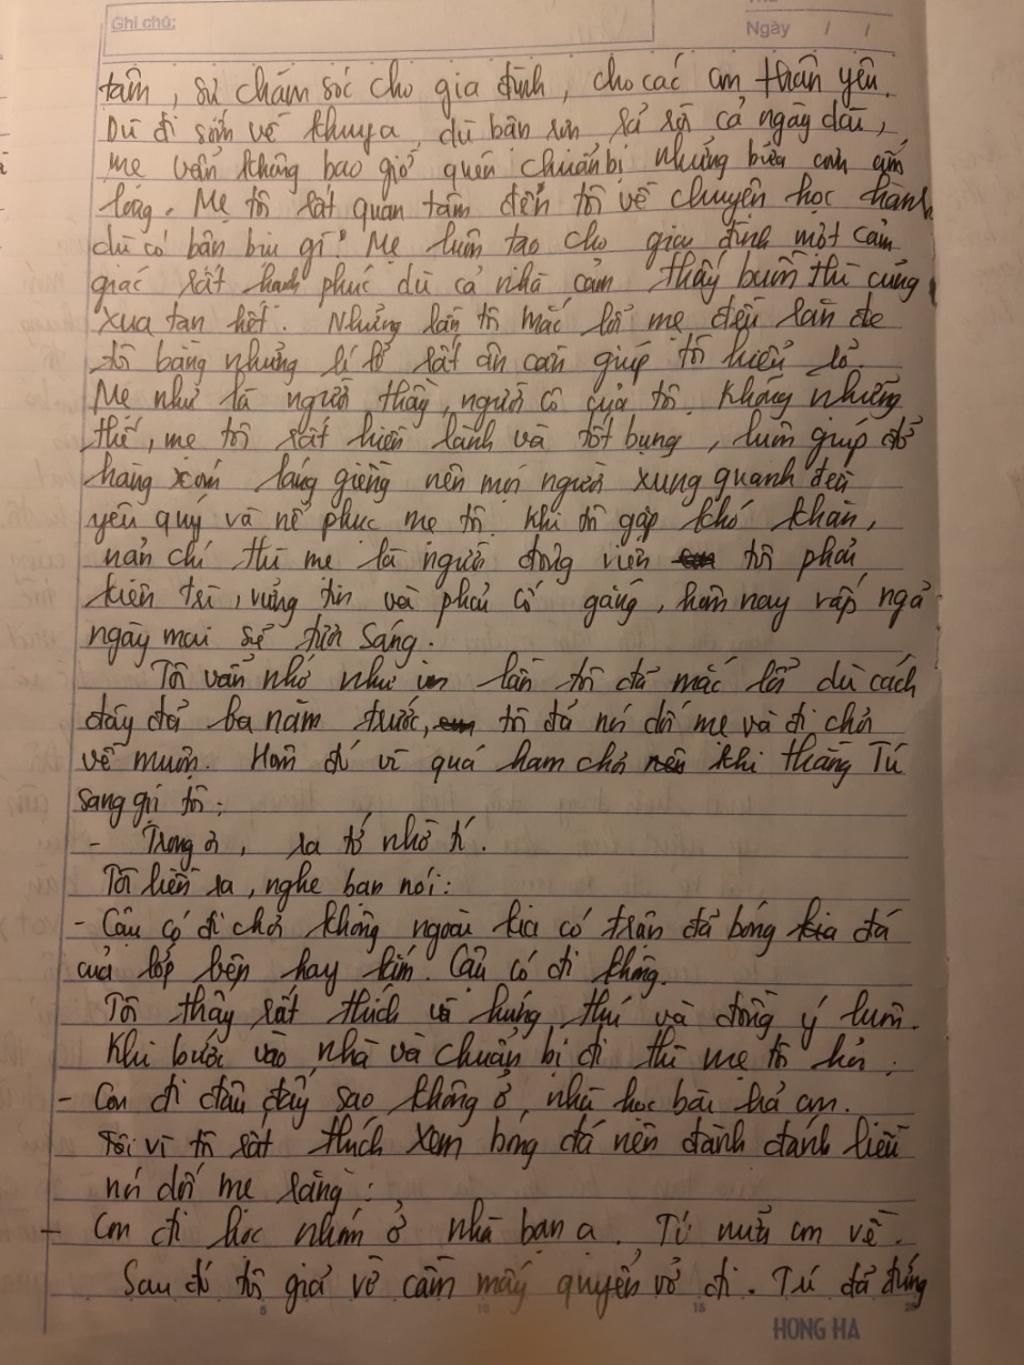 Ghi chú:
Ngày / /
tâm, sự chăm sóc cho gia đình, cho các con thân yêu.
Dù đi sớm về khuya, dù bận rộn cả ngày dài,
mẹ vẫn không bao giờ quên chuẩn bị những bữa cơm ấm
lòng. Mẹ tôi rất quan tâm đến tôi về chuyện học hành
dù có bận bịu gì. Mẹ luôn tạo cho gia đình một cảm
giác rất hạnh phúc dù cả nhà cảm thấy buồn thì cũng
xua tan hết. Những lần tôi mắc lỗi mẹ đều răn đe
tôi bằng những lí lẽ rất ân cần giúp tôi hiểu rõ.
Mẹ như là người thầy, người cô của tôi. Không những
thế, mẹ tôi rất hiền lành và tốt bụng, luôn giúp đỡ
hàng xóm láng giềng nên mọi người xung quanh đều
yêu quý và nể phục mẹ tôi. Khi tôi gặp khó khăn,
nản chí thì mẹ là người động viên tôi phải
kiên trì, vững tin và phải cố gắng, hôm nay vấp ngã
ngày mai sẽ tươi sáng.
Tôi vẫn nhớ như in lần tôi đã mắc lỗi dù cách
đây đã ba năm trước, tôi đã nói dối mẹ và đi chơi
về muộn. Hôm đó vì quá ham chơi nên khi thằng Tú
sang gọi tôi:
- Trọng ơi, ra tớ nhờ tí.
Tôi liền ra, nghe bạn nói:
- Cậu có đi chơi không ngoài kia có trận đá bóng đá
của lớp bên hay lắm. Cậu có đi không.
Tôi thấy rất thích và hứng thú và đồng ý luôn.
Khi bước vào nhà và chuẩn bị đi thì mẹ tôi hỏi:
- Con đi đâu đấy sao không ở nhà học bài hả con.
Tôi vì tôi rất thích xem bóng đá nên đành đánh liều
nói dối mẹ rằng:
- Con đi học nhóm ở nhà bạn ạ. Tí nữa con về.
Sau đó tôi giả vờ cầm mấy quyển vở đi. Tú đã đứng
5 10 15 20
HONG HA